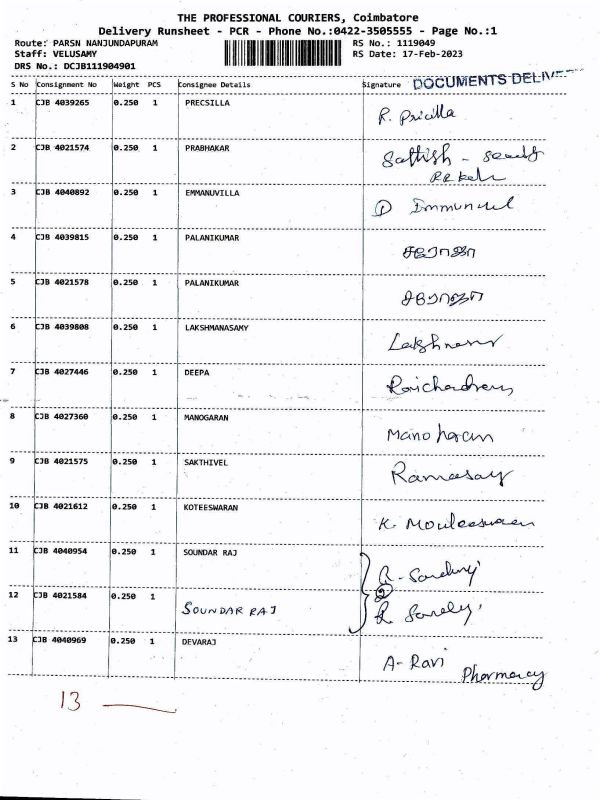 THE PROFESSIONAL COURIERS, Coimbatore
Delivery Runsheet - PCR - Phone No.:0422-3505555 - Page No.:1
Route: PARSN NANJUNDAPURAM RS No.: 1119049
Staff: VELUSAMY RS Date: 17-Feb-2023
DRS No.: DCJB111904901
DOCUMENTS
S No Consignment No Weight PCS Consignee Details Signature
1 CJB 4039265 0.250 1 PRECSILLA R. Pricilla
2 CJB 4021574 0.250 1 PRABHAKAR Sattish -
3 CJB 4040892 0.250 1 EMMANUVILLA
4 CJB 4039815 0.250 1 PALANIKUMAR
5 CJB 4021578 0.250 1 PALANIKUMAR
6 CJB 4039808 0.250 1 LAKSHMANASAMY
7 CJB 4027446 0.250 1 DEEPA
8 CJB 4027360 0.250 1 MANOGARAN Manoharan
9 CJB 4021575 0.250 1 SAKTHIVEL Ramasay
10 CJB 4021612 0.250 1 KOTEESWARAN
11 CJB 4040954 0.250 1 SOUNDAR RAJ
2
12 CJB 4021584 0.250 1 SOUNDAR RAJ
13 CJB 4040969 0.250 1 DEVARAJ A-Ravi Pharmacy
13